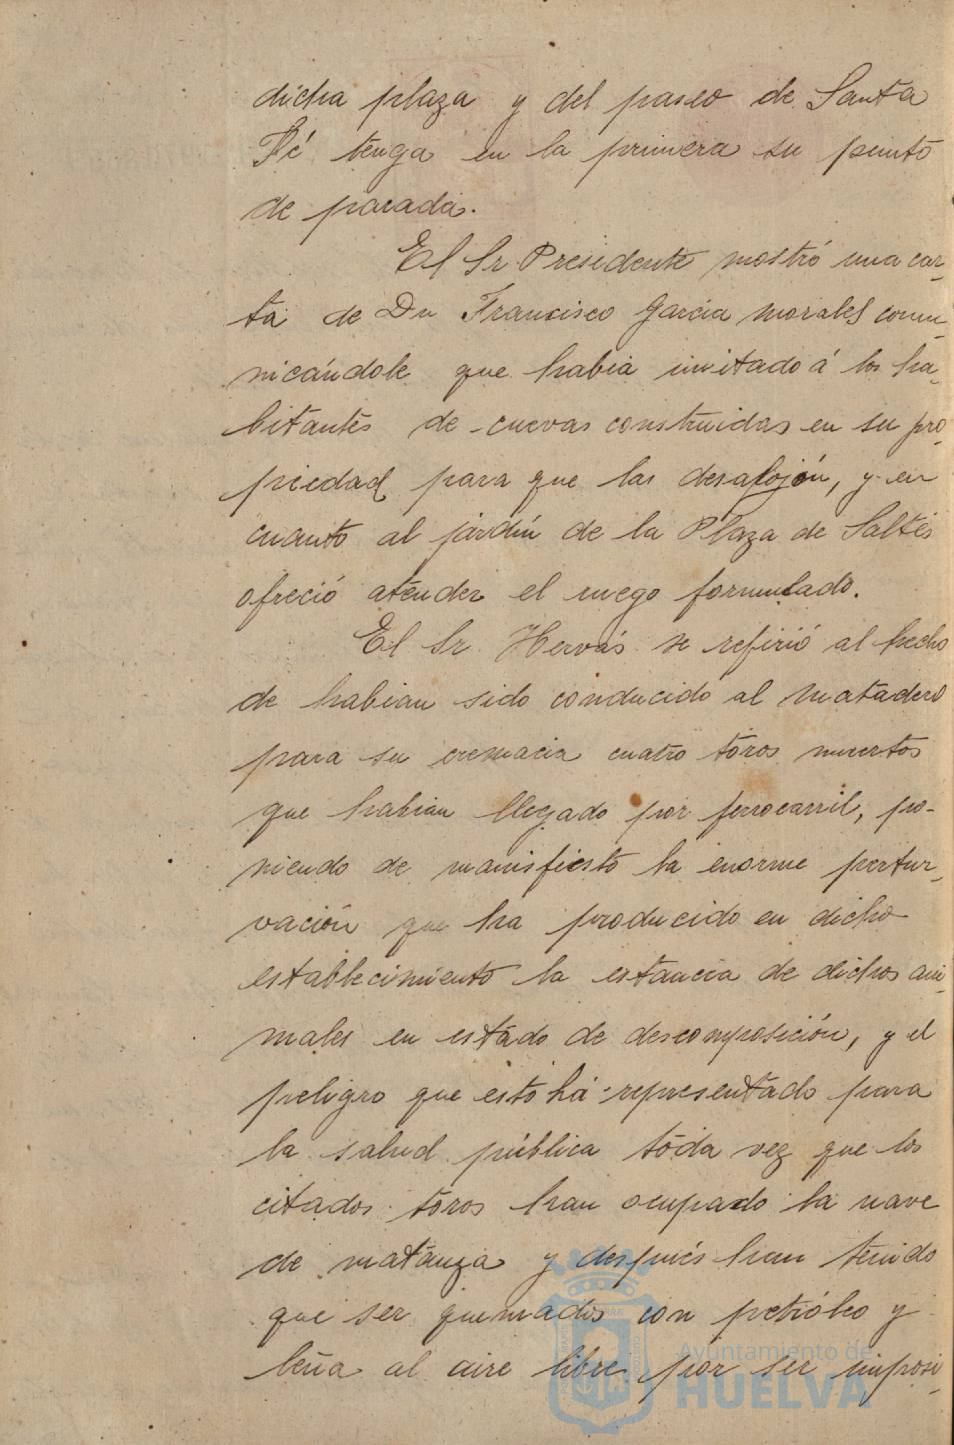 dicha plaza y del paseo de Santa
Fé tenga en la primera su punto
de parada.
El Sr Presidente mostró una car-
ta de Dn Francisco García Morales comu-
nicándole que habia invitado á los ha-
bitantes de cuevas construidas en su pro-
piedad para que las desalojen, y en
cuanto al jardín de la Plaza de Saltés
ofreció atender el ruego formulado.
El Sr. Hervás se refirió al hecho
de habian sido conducido al matadero
para su cremacin cuatro toros muertos
que habian llegado por ferrocarril, po-
niendo de manisfiesto la enorme pertur-
vación que ha producido en dicho
establecimiento la estancia de dichos ani-
males en estado de descomposición, y el
peligro que esto há representado para
la salud pública toda vez que los
citados toros han ocupado la nave
de matanza y después han tenido
que ser quemados con petróleo y
leña al aire libre por ser imposi-
Ayuntamiento de
HUELVA